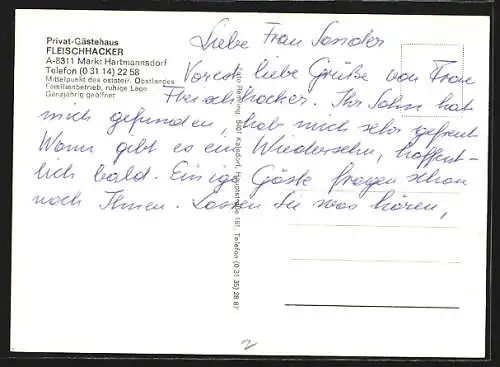 Privat-Gästehaus
FLEISCHHACKER
A-8311 Markt Hartmannsdorf
Telefon (0 31 14) 22 58
Mittelpunkt des oststeir. Obstlandes
Familienbetrieb, ruhige Lage
Ganzjährig geöffnet
Liebe Frau Sonder
Vorerst liebe Grüße von Frau
Fleischhacker. Ihr Sohn hat
mich gefunden, hab mich sehr gefreut
Wann gibt es ein Wiedersehn, hoffent-
lich bald. Einige Gäste fragen schon
nach Ihnen. Lassen Sie was hören,
8401 Kalsdorf, Hauptstraße 151, Telefon (0 31 35) 28 87
2